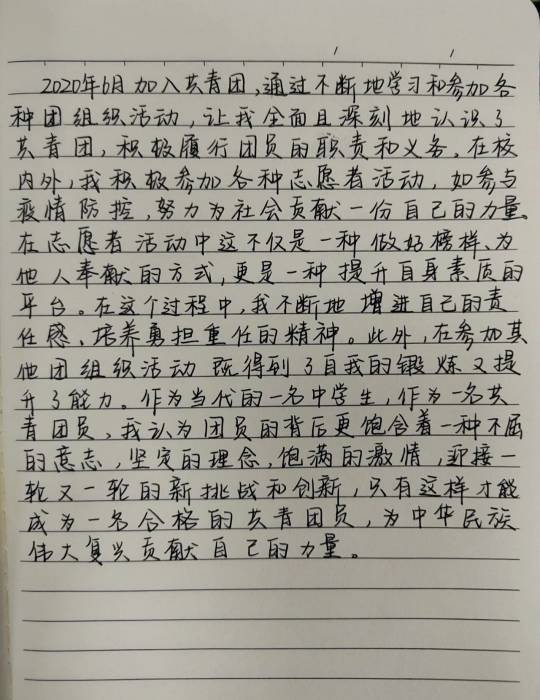 2020年6月加入共青团,通过不断地学习和参加各
种团组织活动,让我全面且深刻地认识了
共青团,积极履行团员的职责和义务。在校
内外,我积极参加各种志愿者活动,如参与
疫情防控,努力为社会贡献一份自己的力量。
在志愿者活动中这不仅是一种做好榜样、为
他人奉献的方式,更是一种提升自身素质的
平台。在这个过程中,我不断地增进自己的责
任感、培养勇担重任的精神。此外,在参加其
他团组织活动既得到了自我的锻炼又提
升了能力。作为当代的一名中学生,作为一名共
青团员,我认为团员的背后更饱含着一种不屈
的意志,坚定的理念,饱满的激情,迎接一
轮又一轮的新挑战和创新,只有这样才能
成为一名合格的共青团员,为中华民族
伟大复兴贡献自己的力量。